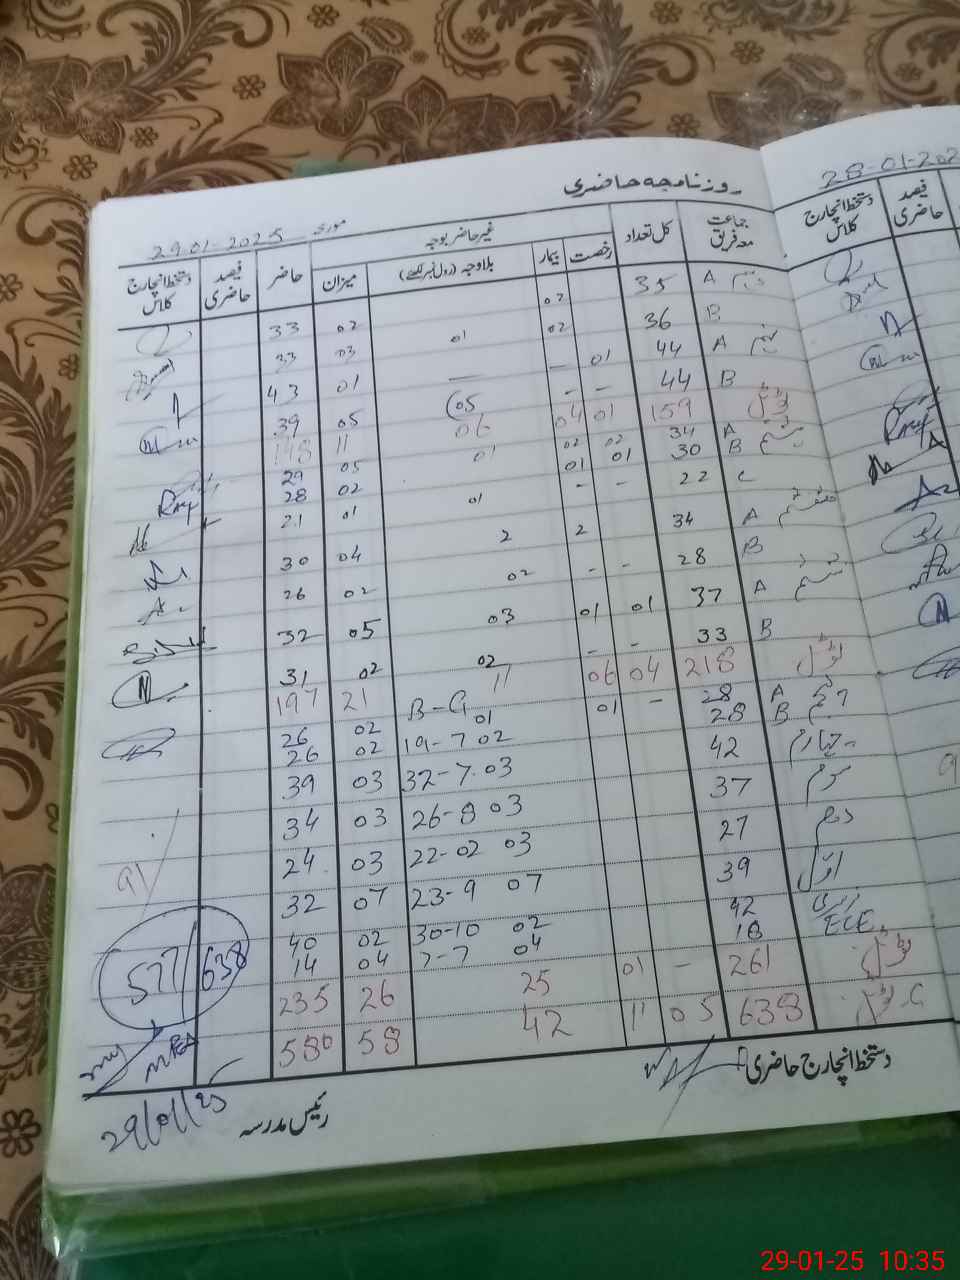 روزنامچہ حاضری
مورخہ 29-01-2025
جماعت معہ فریق کل تعداد غیر حاضر بوجہ حاضر فیصد حاضری دستخط انچارج کلاس
رخصت بیمار بلاوجہ (رول نمبر لکھئے) میزان
A 35 02 02 33
B 36 02 01 03 33
A 44 01 – — 01 43
B 44 – – 05 05 39
ٹوٹل 159 01 04 06 11 148
A 34 02 02 01 05 29
B 30 01 01 02 28
C 22 – – 01 01 21
ہفتم A 34 2 2 04 30
B 28 – – 02 02 26
ششم A 37 01 01 03 05 32
B 33 – – 02 02 31
ٹوٹل 218 04 06 11 21 197
B-G
پنجم A 28 – 01 01 02 26
B 28 19-7 02 02 26
چہارم 42 32-7 03 03 39
سوم 37 26-8 03 03 34
دوم 27 22-02 03 03 24
اول 39 23-9 07 07 32
نرسری 42 30-10 02 02 40
ECE 18 7-7 04 04 14
ٹوٹل 261 – 01 25 26 235
G.ٹوٹل 638 05 11 42 58 580
91
577/638
دستخط انچارج حاضری
رئیس مدرسہ
29/01/25
28-01-202
فیصد حاضری دستخط انچارج کلاس
29-01-25 10:35